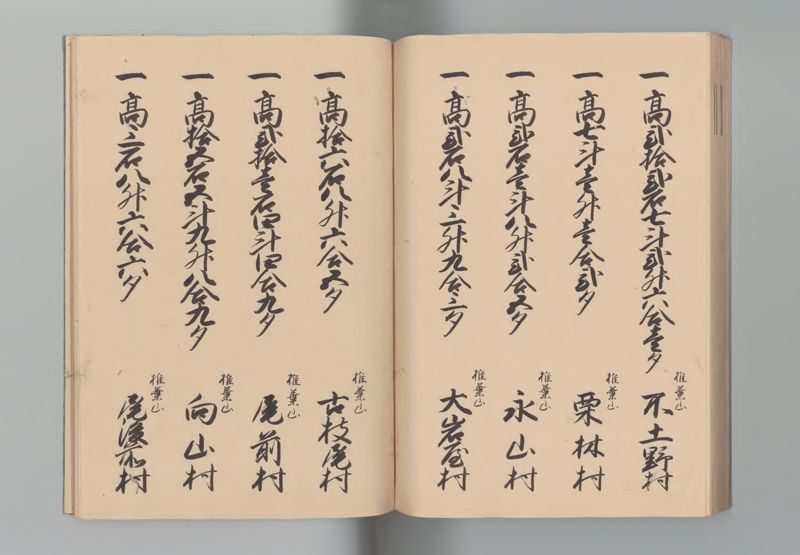 一高弐拾弐石七斗弐升六合壱夕 椎葉山 不土野村
一高七斗壱升壱合弐夕 椎葉山 栗林村
一高弐石壱斗八升弐合五夕 椎葉山 永山村
一高弐石八斗三升九合三夕 椎葉山 大岩屋村
一高拾六石八升六合五夕 椎葉山 古枝尾村
一高弐拾壱石四斗四合九夕 椎葉山 尾前村
一高拾五石五斗九升八合九夕 椎葉山 向山村
一高三石八升六合六夕 椎葉山 尾後不村